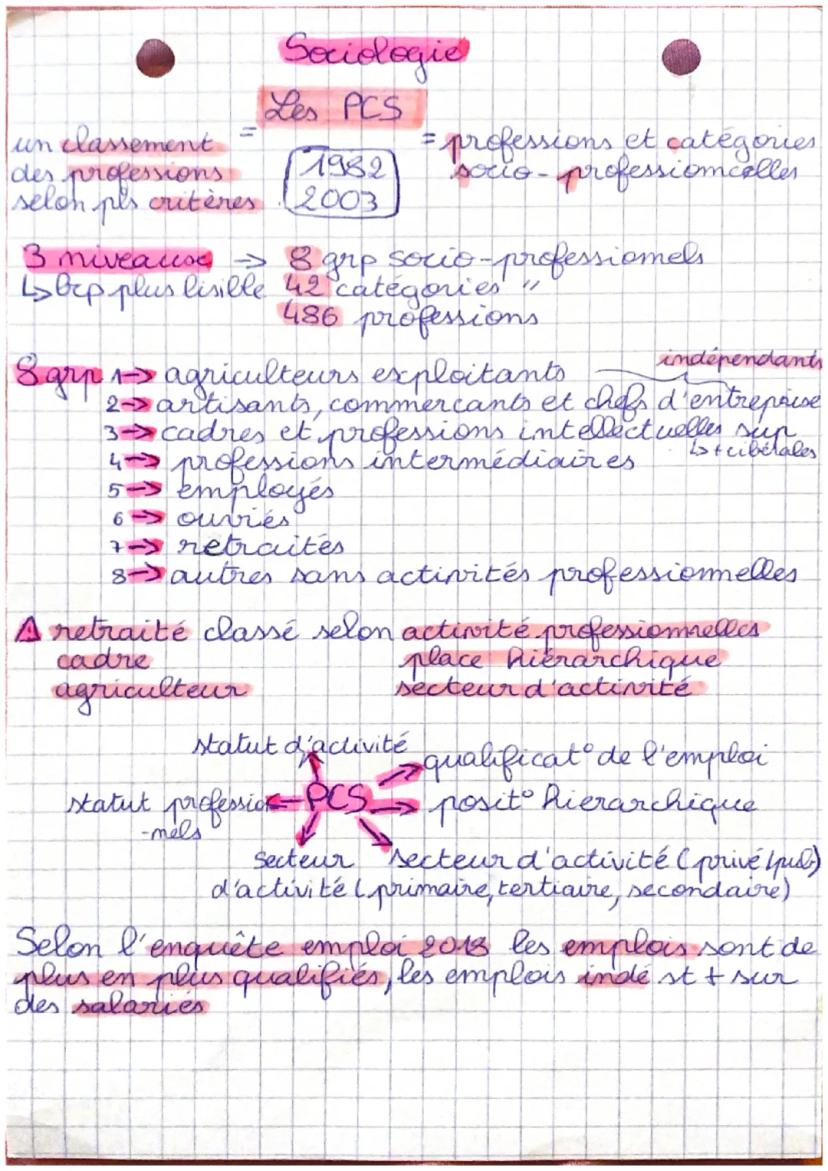 Sociologie
Les PCS
un classement = = professions et catégories
des professions 1982 socio-professionnelles
selon pls critères 2003
3 niveaux → 8 grp socio-professionnels
↳ bcp plus lisible 42 catégories "
486 professions
indépendants
8 grp 1→ agriculteurs exploitants
2→ artisants, commercants et chefs d'entreprise
3→ cadres et professions intellectuelles sup
↳ + libérales
4→ professions intermédiaires
5→ employés
6→ ouvriés
7→ retraités
8→ autres sans activités professionnelles
⚠ retraité classé selon activité professionnelles
cadre place hiérarchique
agriculteur secteur d'activité
statut d'activité
qualificat° de l'emploi
statut profession PCS posit° hierarchique
-nels
secteur secteur d'activité (privé/pub)
d'activité (primaire, tertiaire, secondaire)
Selon l'enquête emploi 2018 les emplois sont de
plus en plus qualifiés, les emplois indé st + sur
des salariés